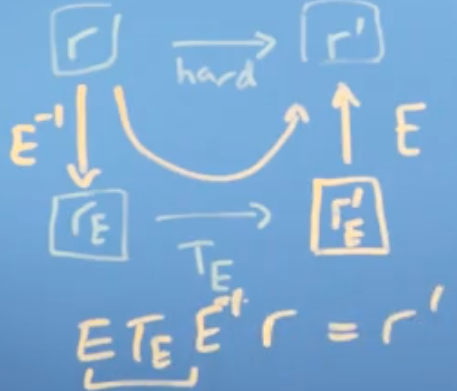 r r'
hard
E⁻¹ E
r_E r'_E
T_E
E T_E E⁻¹ r = r'